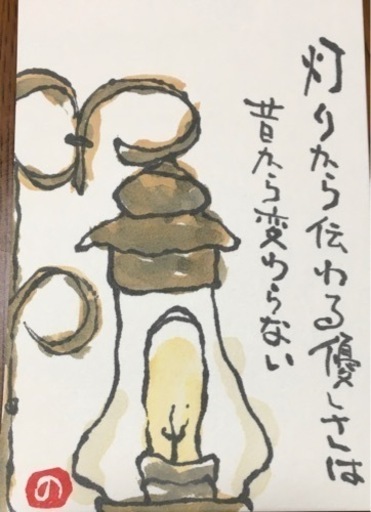 灯りから伝わる優しさは
昔から変わらない
の